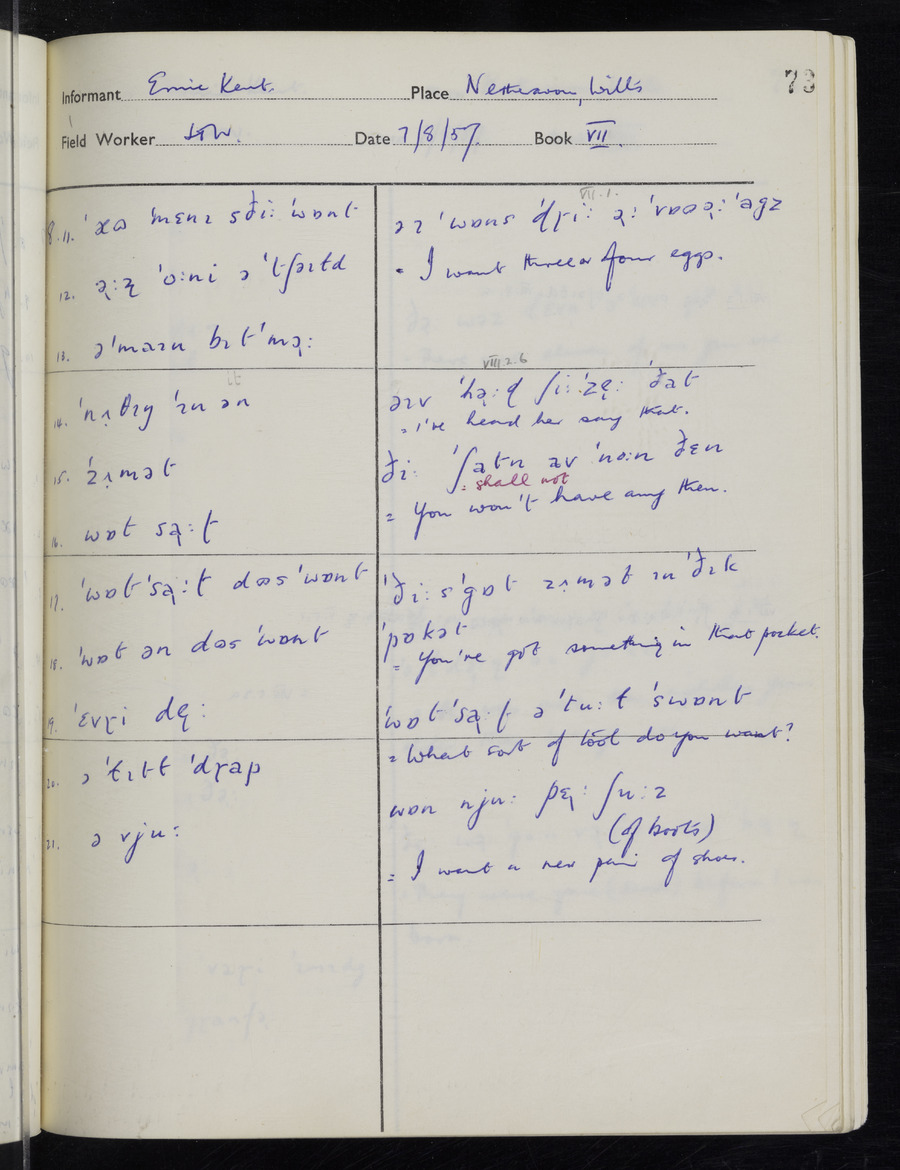 73
Informant Ernie Kent. Place Netheravon, Wilts
Field Worker HW. Date 7/8/57. Book VII.
8.11. ˈmɛnɪ sðiː ˈwɒnt
12. ˈoːni ə ˈtʃəɪɫd
13. əˈməɪn bɪt ˈməɽː
14. ˈɪn ən
15. ˈzʌmət
16. wɒt sɑɽːt
17. ˈwɒt ˈsɑɽːt dəs ˈwɒnt
18. ˈwɒt ən dəs ˈwɒnt
19. ˈɛvɽi dɛː
20. ə ˈtɪɫt ˈdɽap
21. ə vjuː
VII.1.
əɪ ˈwɒns ˈagz
= I want three or four eggs.
VIII.2.6
ʃiː ˈðat
= I've heard her say that.
ðiː ˈʃatn av ˈnoːn ðɛn
= shall not
= You won't have any then.
ˈðiː s ˈgɒt zʌmət ɪn ˈðɪk
ˈpɒkət
= You've got something in that pocket.
ˈwɒt ˈsɑɽːt ə ˈtuːɫ ˈswɒnt
= What sort of tool do you want?
wɒn njuː ʃuːz
(of boots)
= I want a new pair of shoes.